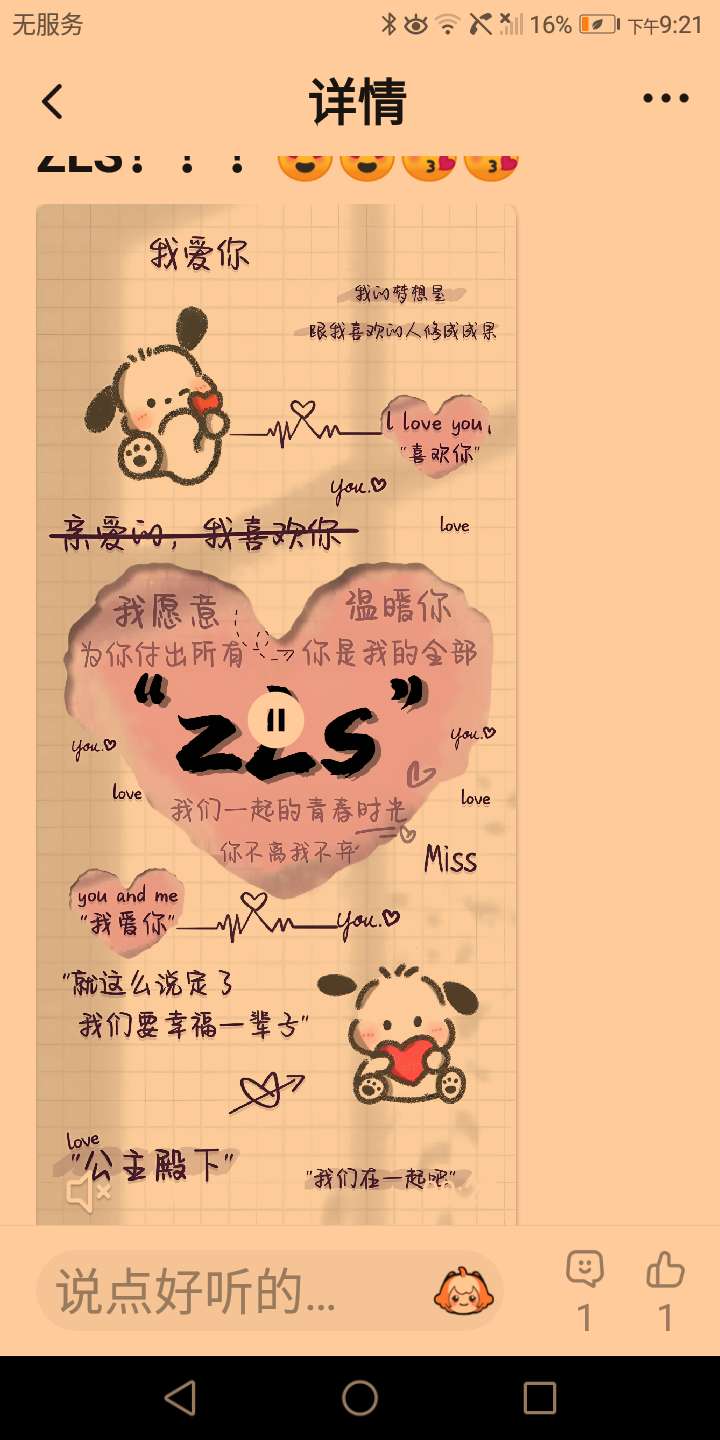 无服务 16% 下午9:21
详情
ZLS！！！
我爱你
我的梦想是
跟我喜欢的人修成成果
I love you,
"喜欢你"
you.
亲爱的，我喜欢你
love
我愿意 温暖你
为你付出所有 你是我的全部
"ZLS"
you.
you.
love
love
我们一起的青春时光
你不离我不弃
Miss
you and me
"我爱你"
you.
"就这么说定了
我们要幸福一辈子"
love
"公主殿下"
"我们在一起吧"
说点好听的...
1 1